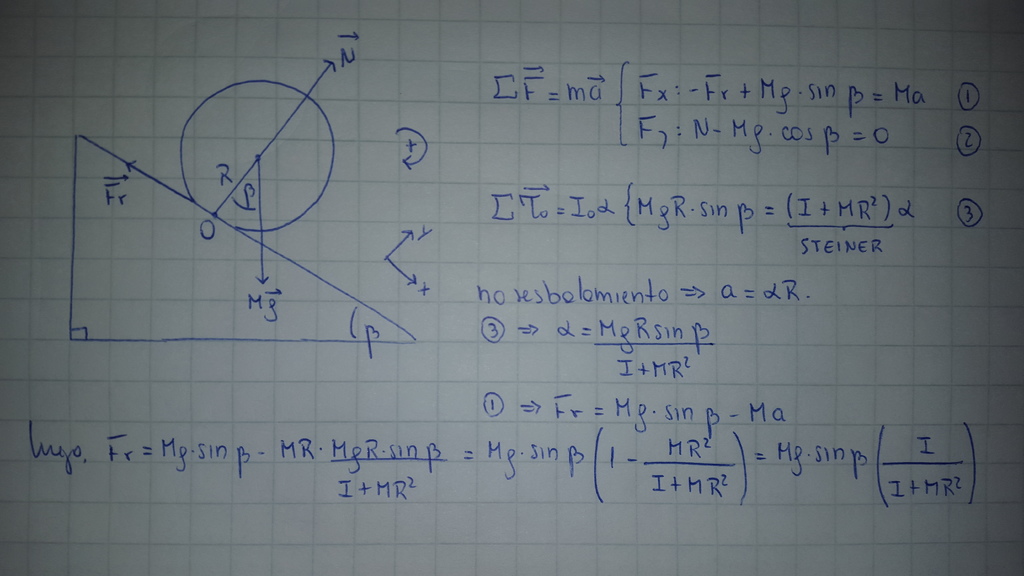 N⃗
R
β
F⃗r
O
Mg⃗
β
+
y
x
ΣF⃗ = ma⃗ { Fx: -Fr + Mg·sin β = Ma ①
Fy: N - Mg·cos β = 0 ②
Στ⃗o = Io α { MgR·sin β = (I + MR²) α ③
STEINER
no resbalamiento ⇒ a = αR.
③ ⇒ α = MgR sin β / (I + MR²)
① ⇒ Fr = Mg·sin β - Ma
luego, Fr = Mg·sin β - MR · MgR·sin β / (I + MR²) = Mg·sin β (1 - MR² / (I + MR²)) = Mg·sin β (I / (I + MR²))